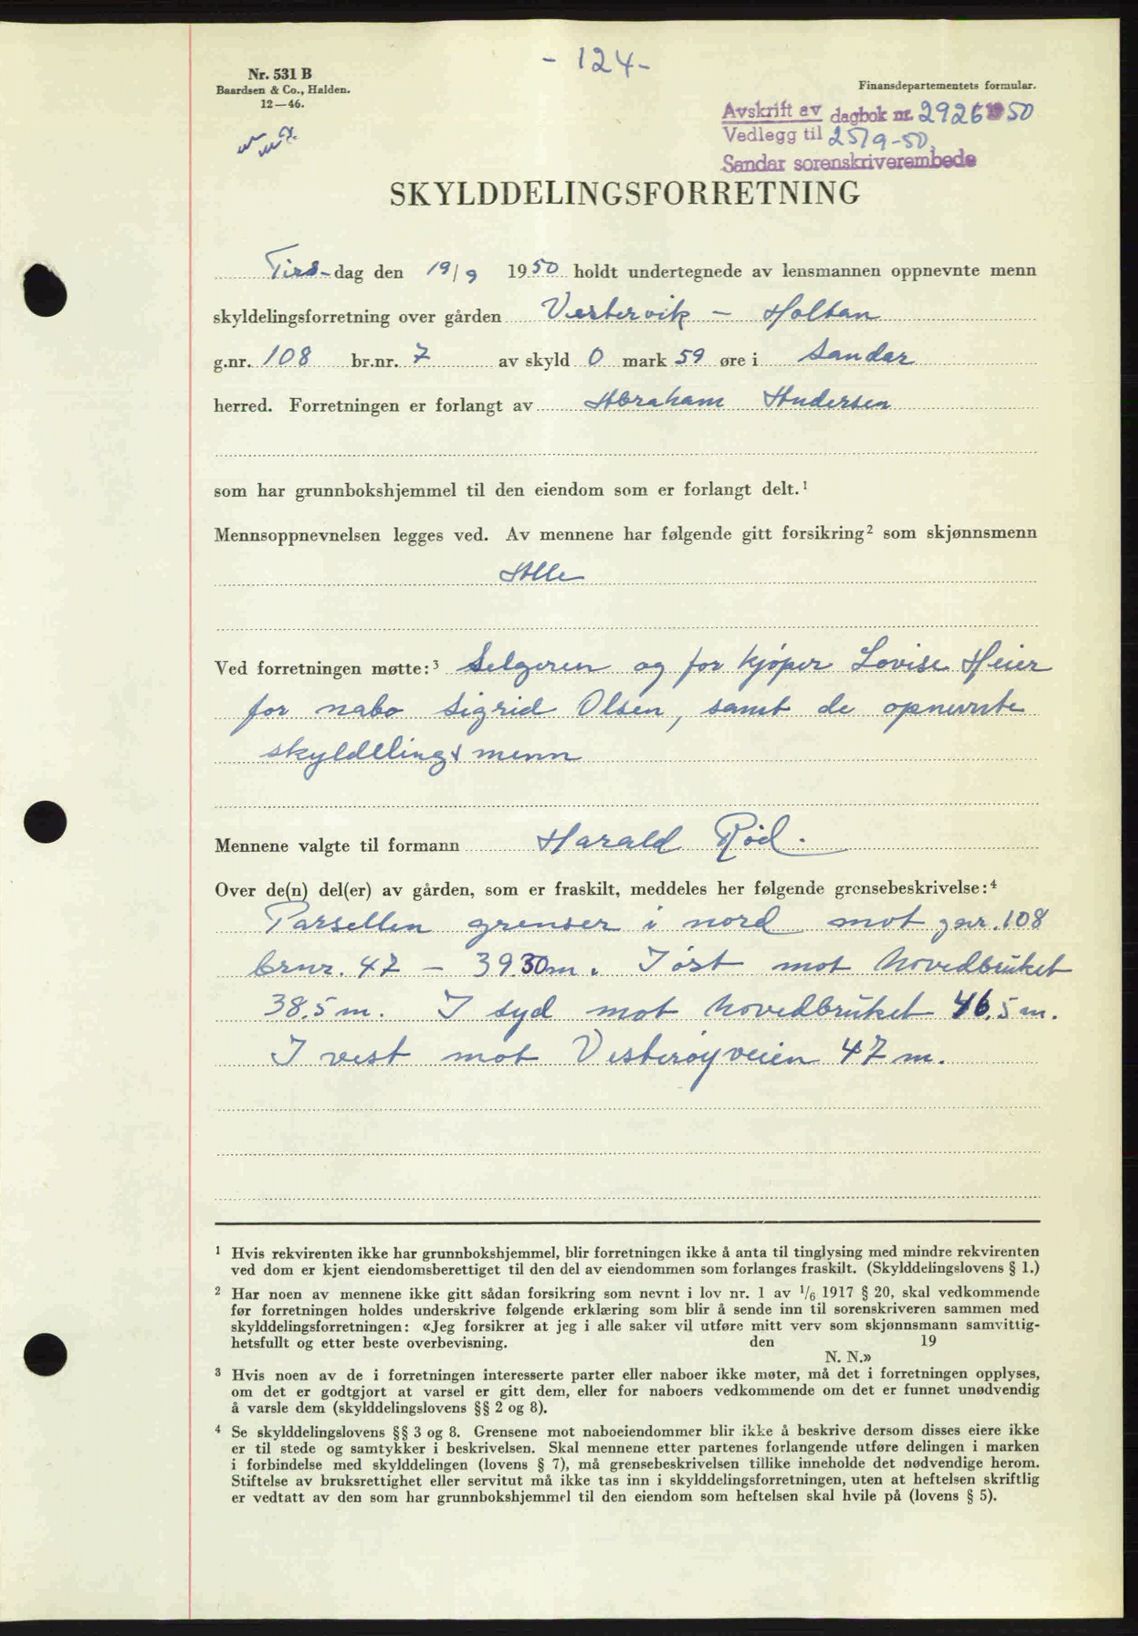 - 124 -
Nr. 531 B
Baardsen & Co., Halden.
12—46.
Finansdepartementets formular.
Avskrift av dagbok nr. 2926 1950
Vedlegg til 25/9-50
Sandar sorenskriverembede
SKYLDDELINGSFORRETNING
Tirs-dag den 19/9 1950 holdt undertegnede av lensmannen oppnevnte menn
skyldelingsforretning over gården Vestervik - Holtan
g.nr. 108 br.nr. 7 av skyld 0 mark 59 øre i Sandar
herred. Forretningen er forlangt av Abraham Andersen
som har grunnbokshjemmel til den eiendom som er forlangt delt.¹
Mennsoppnevnelsen legges ved. Av mennene har følgende gitt forsikring² som skjønnsmenn
Alle
Ved forretningen møtte:³ Selgeren og for kjøper Lovise Heier
for nabo Sigrid Olsen, samt de opnevnte
skylddelingsmenn
Mennene valgte til formann Harald Rød.
Over de(n) del(er) av gården, som er fraskilt, meddeles her følgende grensebeskrivelse:⁴
Parsellen grenser i nord mot gnr. 108
brnr. 47 - 39.30 m. I øst mot hovedbruket
38,5 m. I syd mot hovedbruket 46,5 m.
I vest mot Vesterøyveien 47 m.
¹ Hvis rekvirenten ikke har grunnbokshjemmel, blir forretningen ikke å anta til tinglysing med mindre rekvirenten
ved dom er kjent eiendomsberettiget til den del av eiendommen som forlanges fraskilt. (Skylddelingslovens § 1.)
² Har noen av mennene ikke gitt sådan forsikring som nevnt i lov nr. 1 av 1/6 1917 § 20, skal vedkommende
før forretningen holdes underskrive følgende erklæring som blir å sende inn til sorenskriveren sammen med
skylddelingsforretningen: «Jeg forsikrer at jeg i alle saker vil utføre mitt verv som skjønnsmann samvittig-
hetsfullt og etter beste overbevisning. den 19
N. N.»
³ Hvis noen av de i forretningen interesserte parter eller naboer ikke møter, må det i forretningen opplyses,
om det er godtgjort at varsel er gitt dem, eller for naboers vedkommende om det er funnet unødvendig
å varsle dem (skylddelingslovens §§ 2 og 8).
⁴ Se skylddelingslovens §§ 3 og 8. Grensene mot naboeiendommer blir ikke å beskrive dersom disses eiere ikke
er til stede og samtykker i beskrivelsen. Skal mennene etter partenes forlangende utføre delingen i marken
i forbindelse med skylddelingen (lovens § 7), må grensebeskrivelsen tillike inneholde det nødvendige herom.
Stiftelse av bruksrettighet eller servitut må ikke tas inn i skylddelingsforretningen, uten at heftelsen skriftlig
er vedtatt av den som har grunnbokshjemmel til den eiendom som heftelsen skal hvile på (lovens § 5).